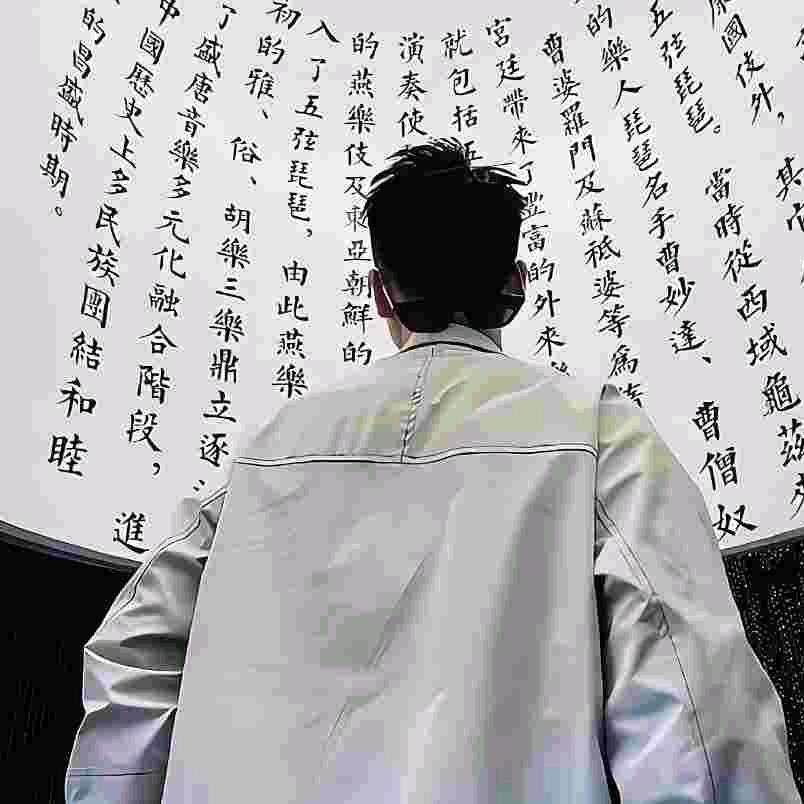 國伎外，其
五弦琵琶。當時從西域龜茲
的樂人琵琶名手曹妙達、曹僧奴
曹婆羅門及蘇祗婆等為
宮廷帶來了豐富的外來
就包括五
演奏使
的燕樂伎及東亞朝鮮的
入了五弦琵琶，由此燕樂
初的雅、俗、胡樂三樂鼎立逐
了盛唐音樂多元化融合階段，進
中國歷史上多民族團結和睦
的昌盛時期。